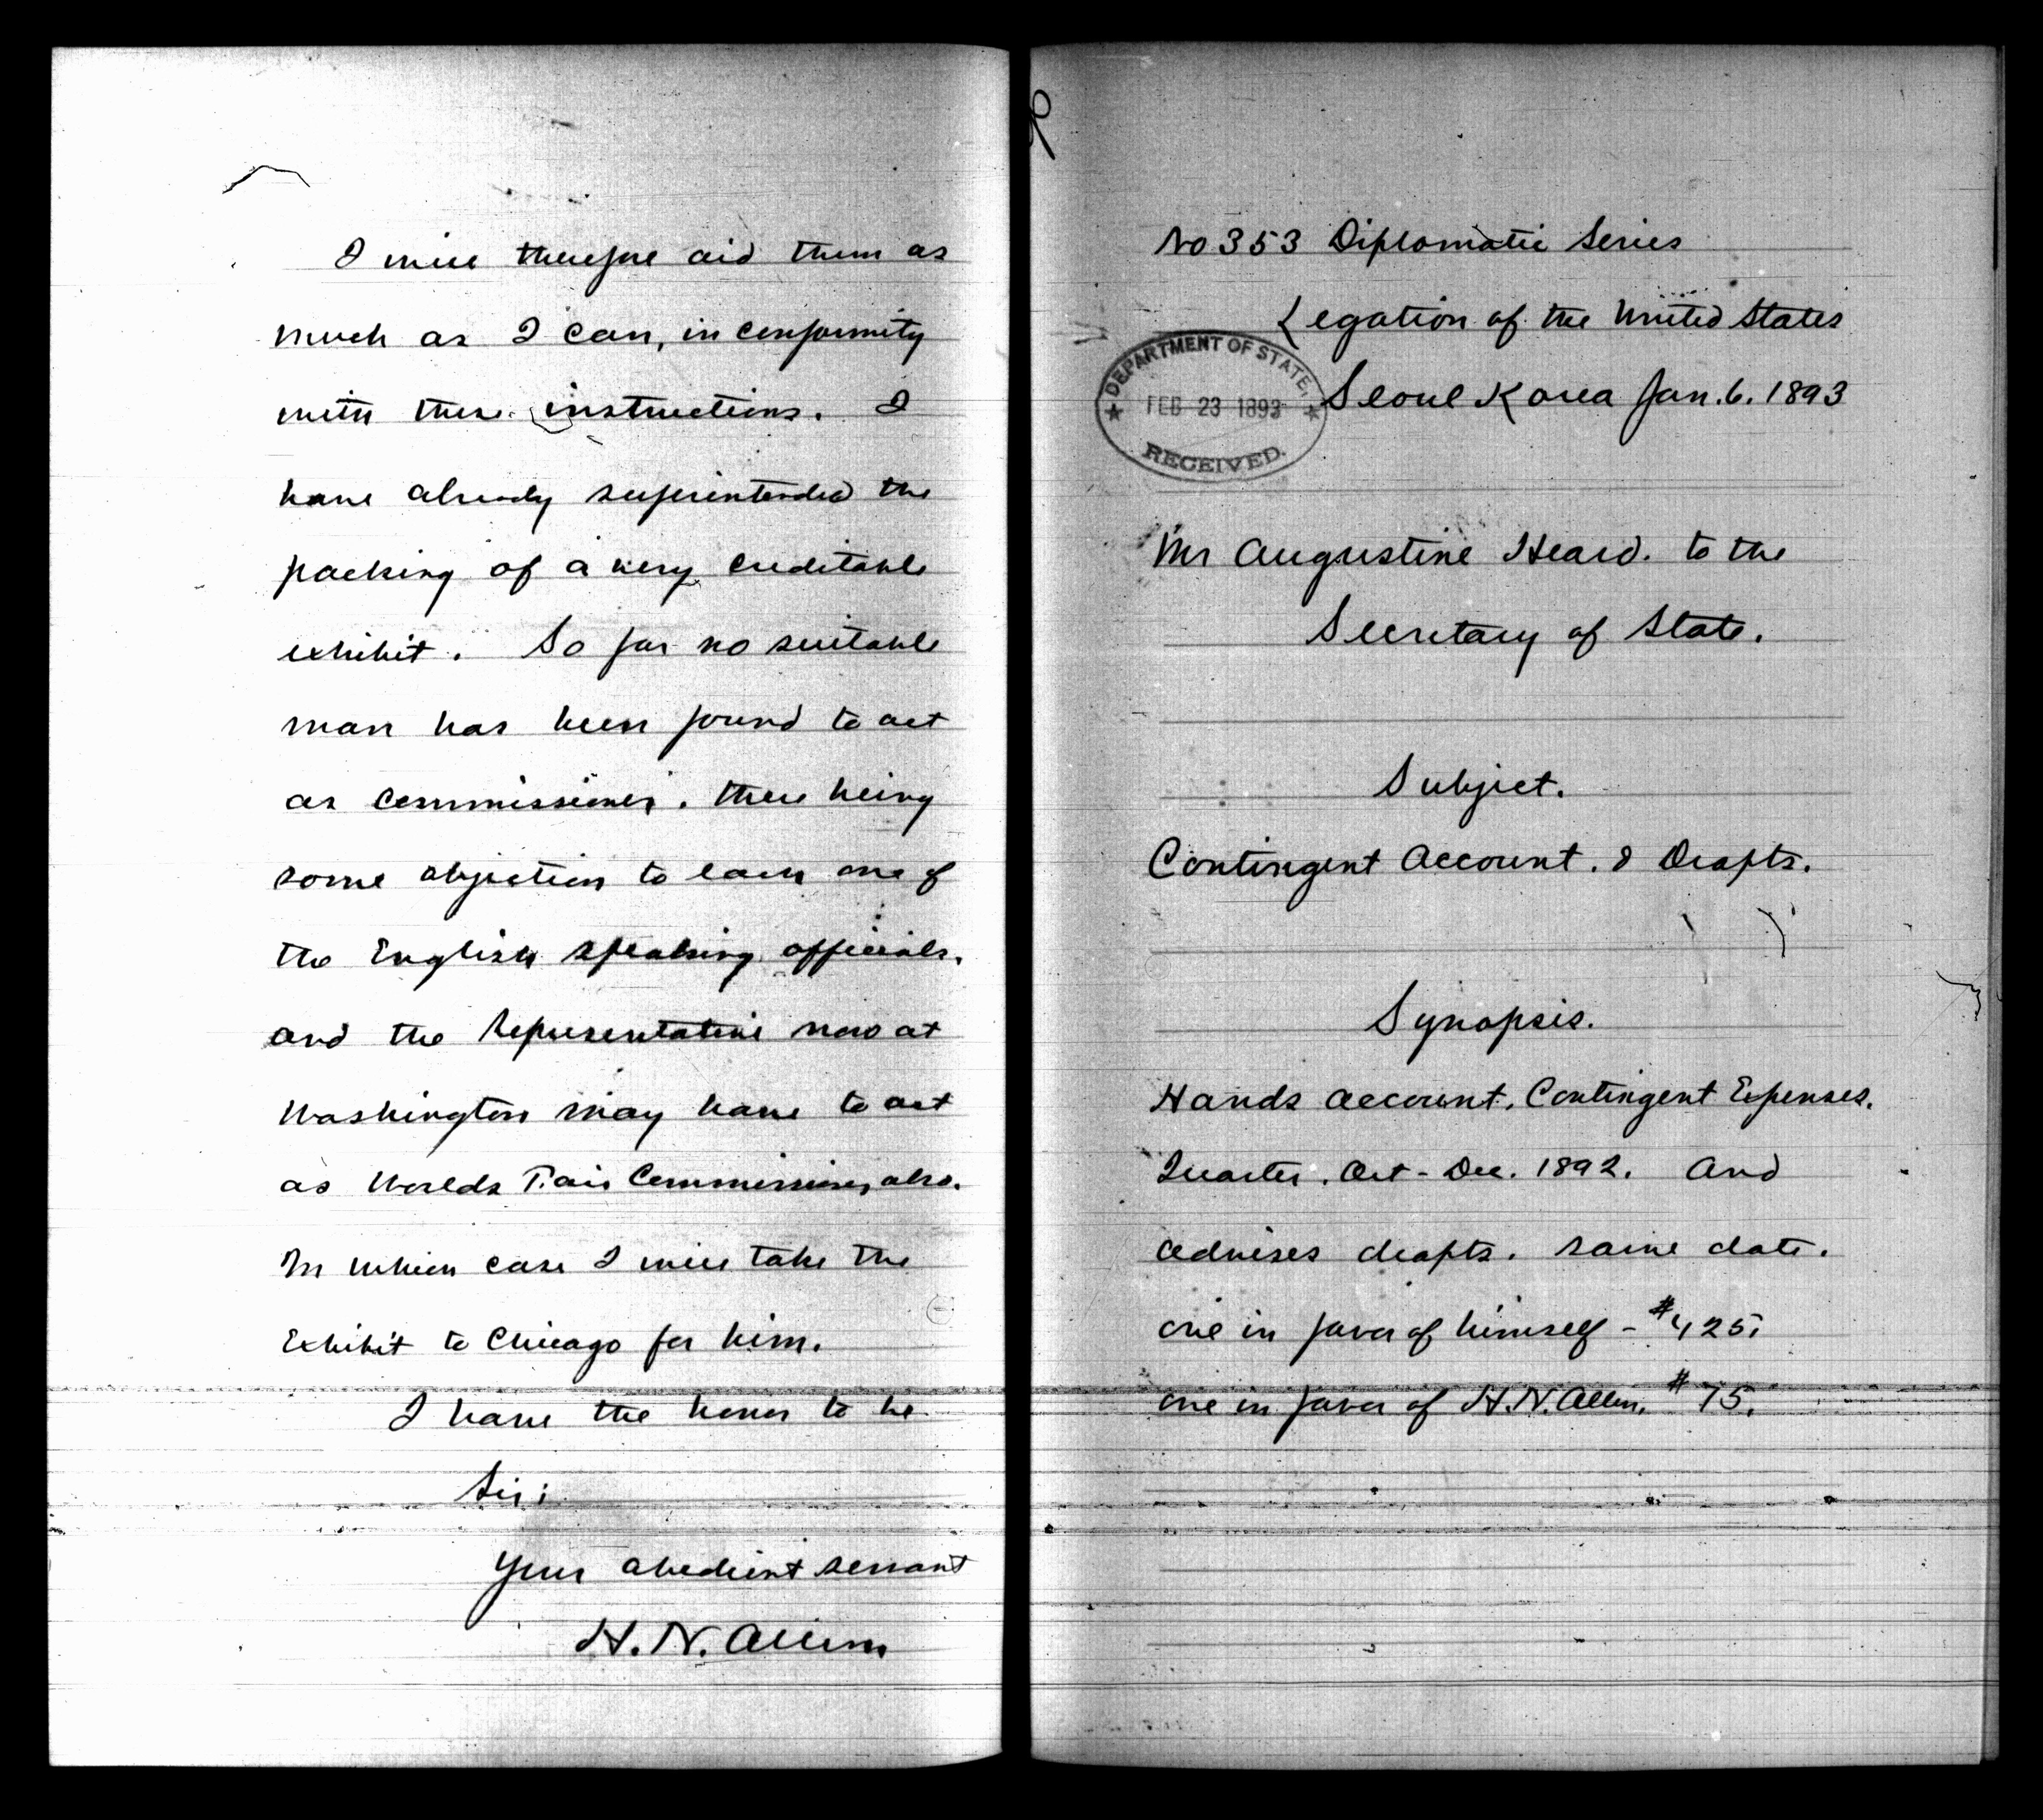 I will therefore aid them as
much as I can, in conformity
with these instructions. I
have already superintended the
packing of a very creditable
exhibit. So far no suitable
man has been found to act
as commissioner, there being
some objection to each one of
the English speaking officials,
and the Representative now at
Washington may have to act
as Worlds Fair Commissioner, also.
In which case I will take the
Exhibit to Chicago for him.
I have the honor to be
Sir;
Your obedient servant
H. N. Allen
No 353 Diplomatic Series
Legation of the United States
Seoul Korea Jan. 6. 1893
DEPARTMENT OF STATE,
FEB 23 1893
RECEIVED.
Mr Augustine Heard. to the
Secretary of State.
Subject.
Contingent Account. & Drafts.
Synopsis.
Hands account. Contingent Expenses.
Quarter. Oct - Dec. 1892. And
advises drafts. same date.
one in favor of himself -
one in favor of H. N. Allen. # 75.